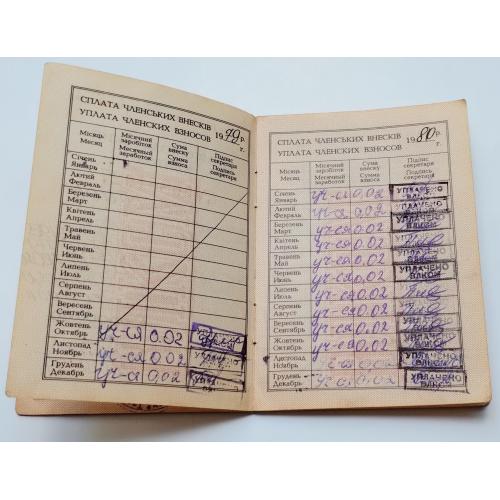 СПЛАТА ЧЛЕНСЬКИХ ВНЕСКІВ
УПЛАТА ЧЛЕНСКИХ ВЗНОСОВ 1979 р. г.
Місяць Місячний заробіток Сума внеску Підпис секретаря
Месяц Месячный заработок Сумма взноса Подпись секретаря
Січень
Январь
Лютий
Февраль
Березень
Март
Квітень
Апрель
Травень
Май
Червень
Июнь
Липень
Июль
Серпень
Август
Вересень
Сентябрь
Жовтень
Октябрь уч-ся 0.02
Листопад
Ноябрь уч-ся 0.02
Грудень
Декабрь уч-ся 0.02
СПЛАТА ЧЛЕНСЬКИХ ВНЕСКІВ
УПЛАТА ЧЛЕНСКИХ ВЗНОСОВ 1980 р. г.
Місяць Місячний заробіток Сума внеску Підпис секретаря
Месяц Месячный заработок Сумма взноса Подпись секретаря
Січень
Январь уч-ся 0.02 УПЛАЧЕНО
Лютий
Февраль уч-ся 0.02
Березень
Март уч-ся 0.02 УПЛАЧЕНО
Квітень
Апрель уч-ся 0.02
Травень
Май уч-ся 0.02 УПЛАЧЕНО
Червень
Июнь уч-ся 0.02 УПЛАЧЕНО ВЛКСМ
Липень
Июль уч-ся 0.02
Серпень
Август уч-ся 0.02 УПЛАЧЕНО
Вересень
Сентябрь уч-ся 0.02
Жовтень
Октябрь уч-ся 0.02 УПЛАЧЕНО
Листопад
Ноябрь УПЛАЧЕНО
Грудень
Декабрь 0.02 УПЛАЧЕНО ВЛКСМ